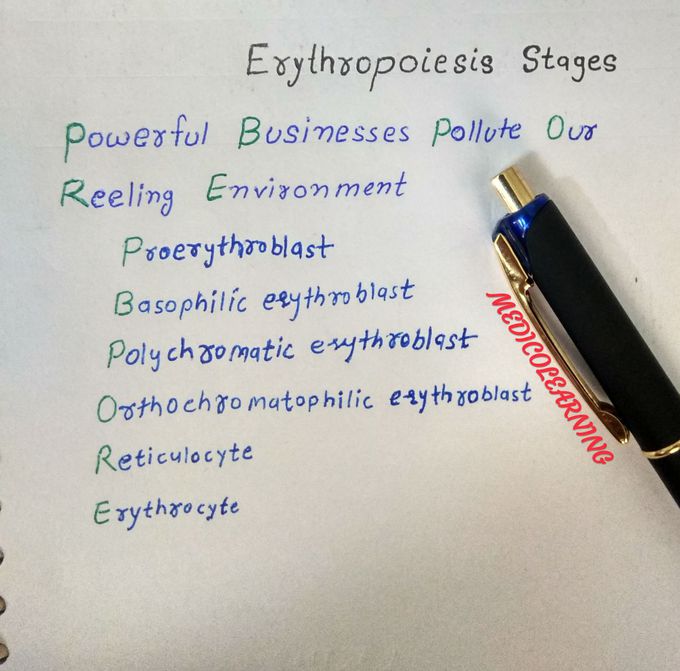 Erythropoiesis Stages
Powerful Businesses Pollute Our
Reeling Environment
Proerythroblast
Basophilic erythroblast
Polychromatic erythroblast
Orthochromatophilic erythroblast
Reticulocyte
Erythrocyte
MEDICOLEARNING